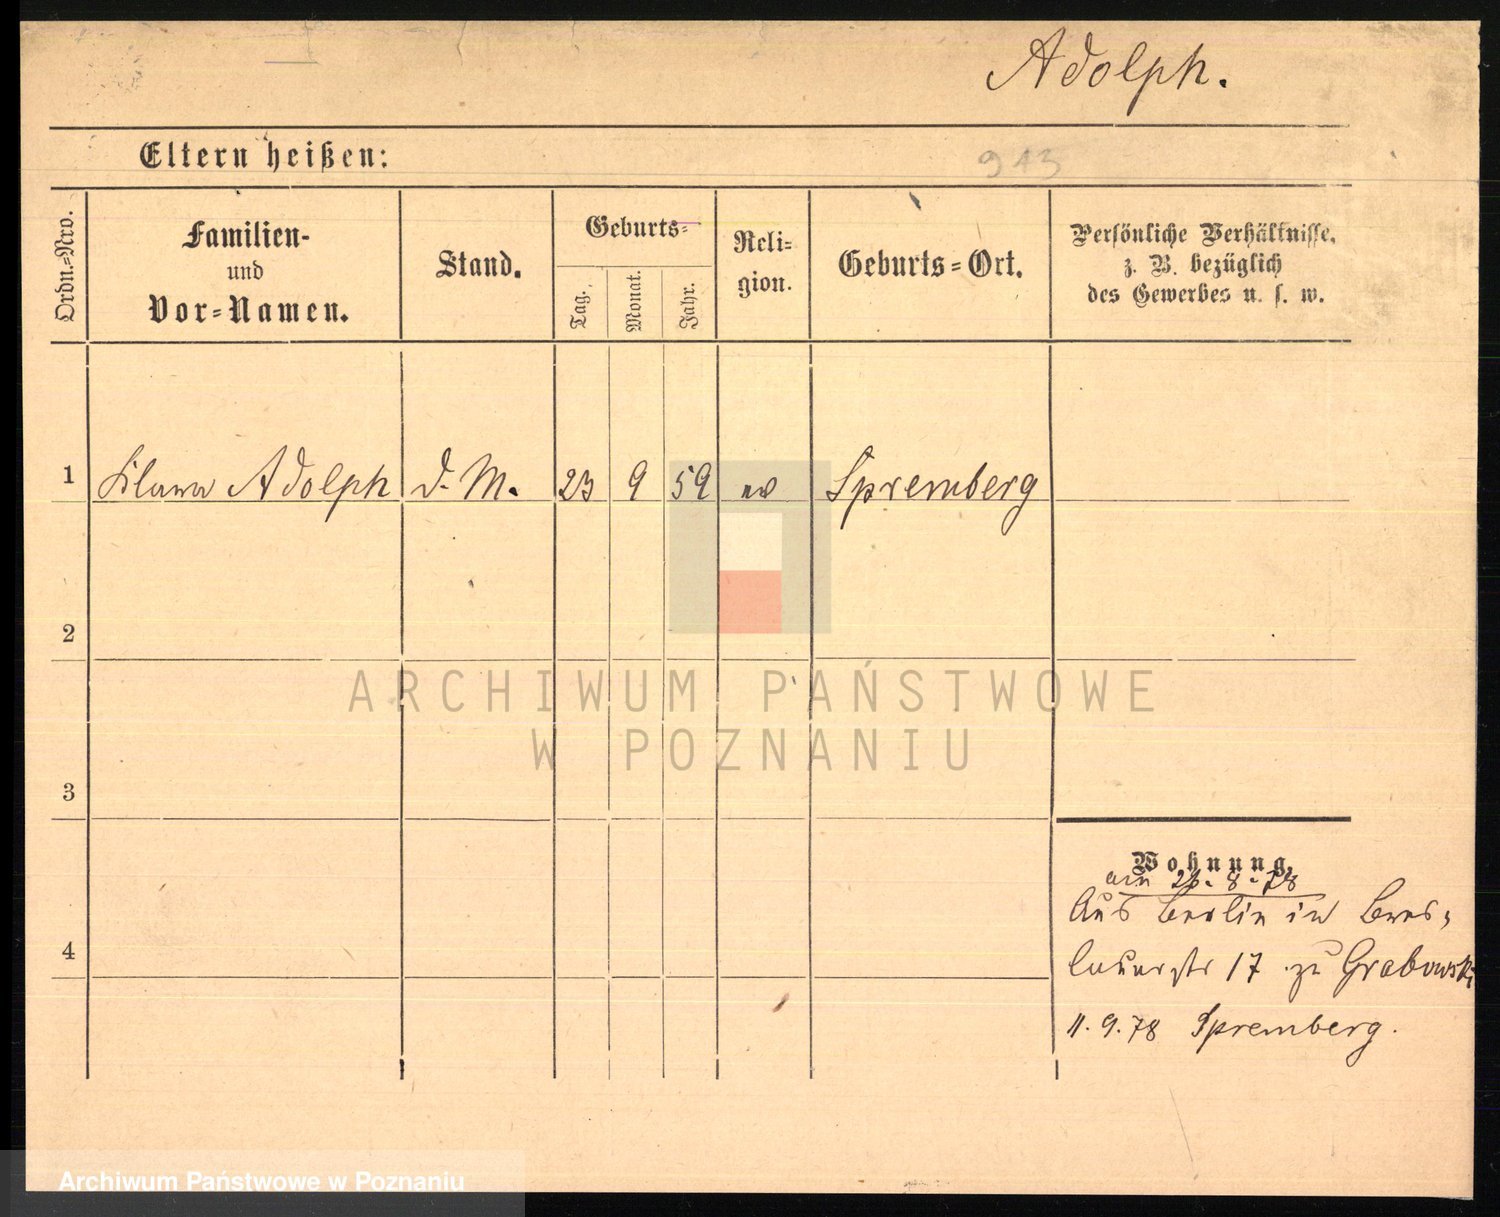 Adolph.
Eltern heißen:
913
Ordn.-Nro.
Familien-
und
Vor-Namen.
Stand.
Geburts-
Tag.
Monat.
Jahr.
Reli-
gion.
Geburts-Ort.
Persönliche Verhältnisse,
z. B. bezüglich
des Gewerbes u. s. w.
1 Klara Adolph d. M. 23 9 59 ev Spremberg
2
3
4
Wohnung.
am 8. 78
Aus Berlin in Bres-
lauerstr 17 zu Grabowski
11.9.78 Spremberg.
ARCHIWUM PAŃSTWOWE
W POZNANIU
Archiwum Państwowe w Poznaniu